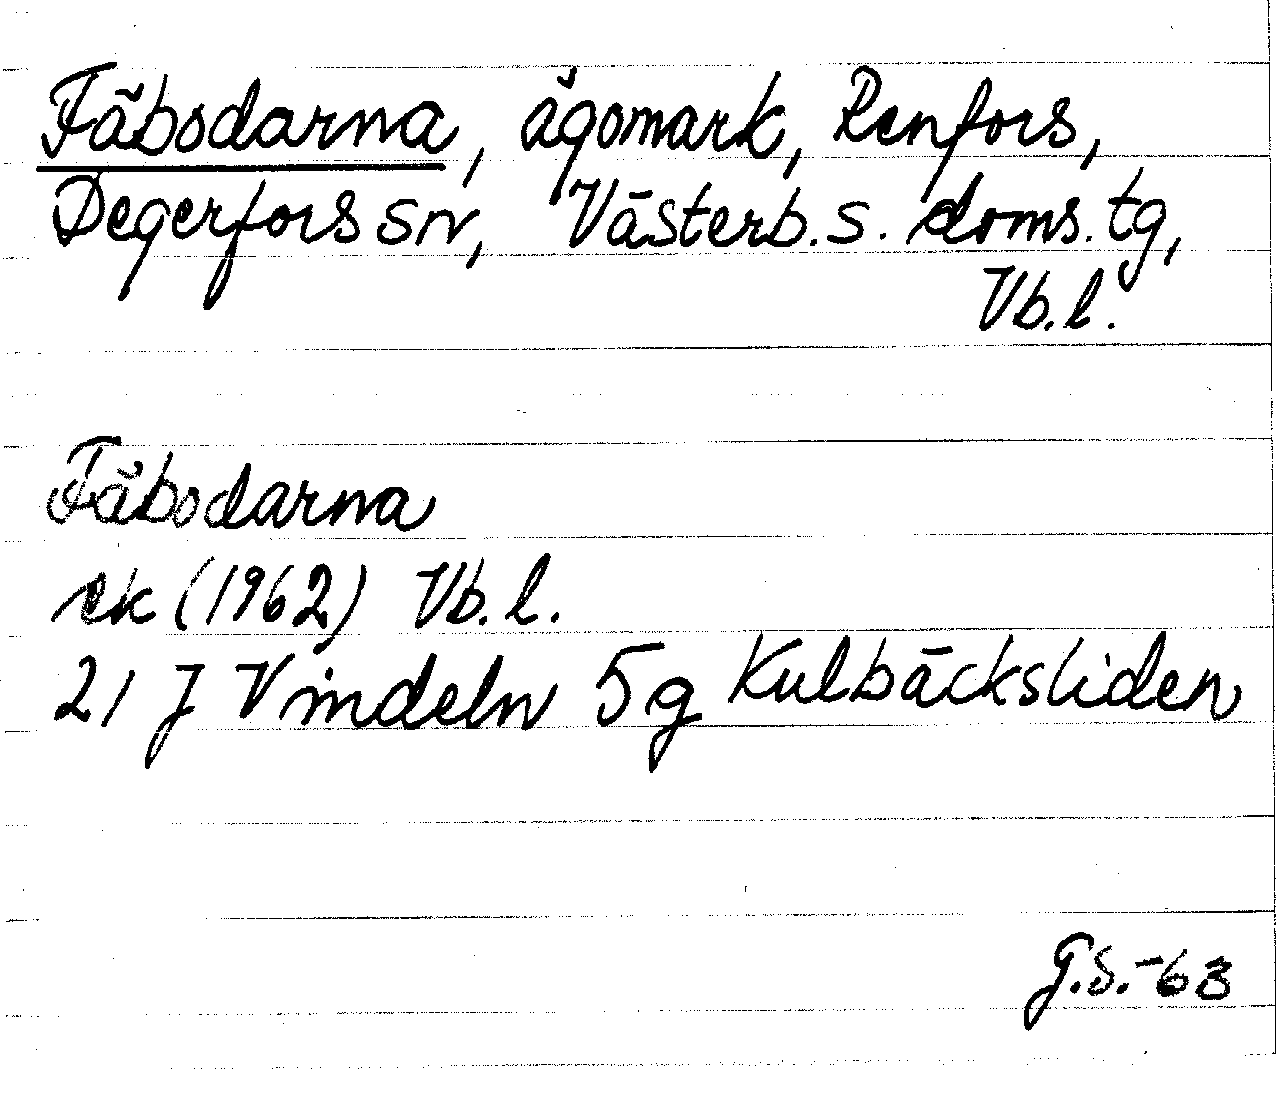 Fäbodarna, ägomark, Renfors,
Degerfors sn, Västerb. s. doms. tg,
Vb. l.
Fäbodarna
ek (1962) Vb. l.
21 J Vindeln 5g Kulbäcksliden
G.S. -63